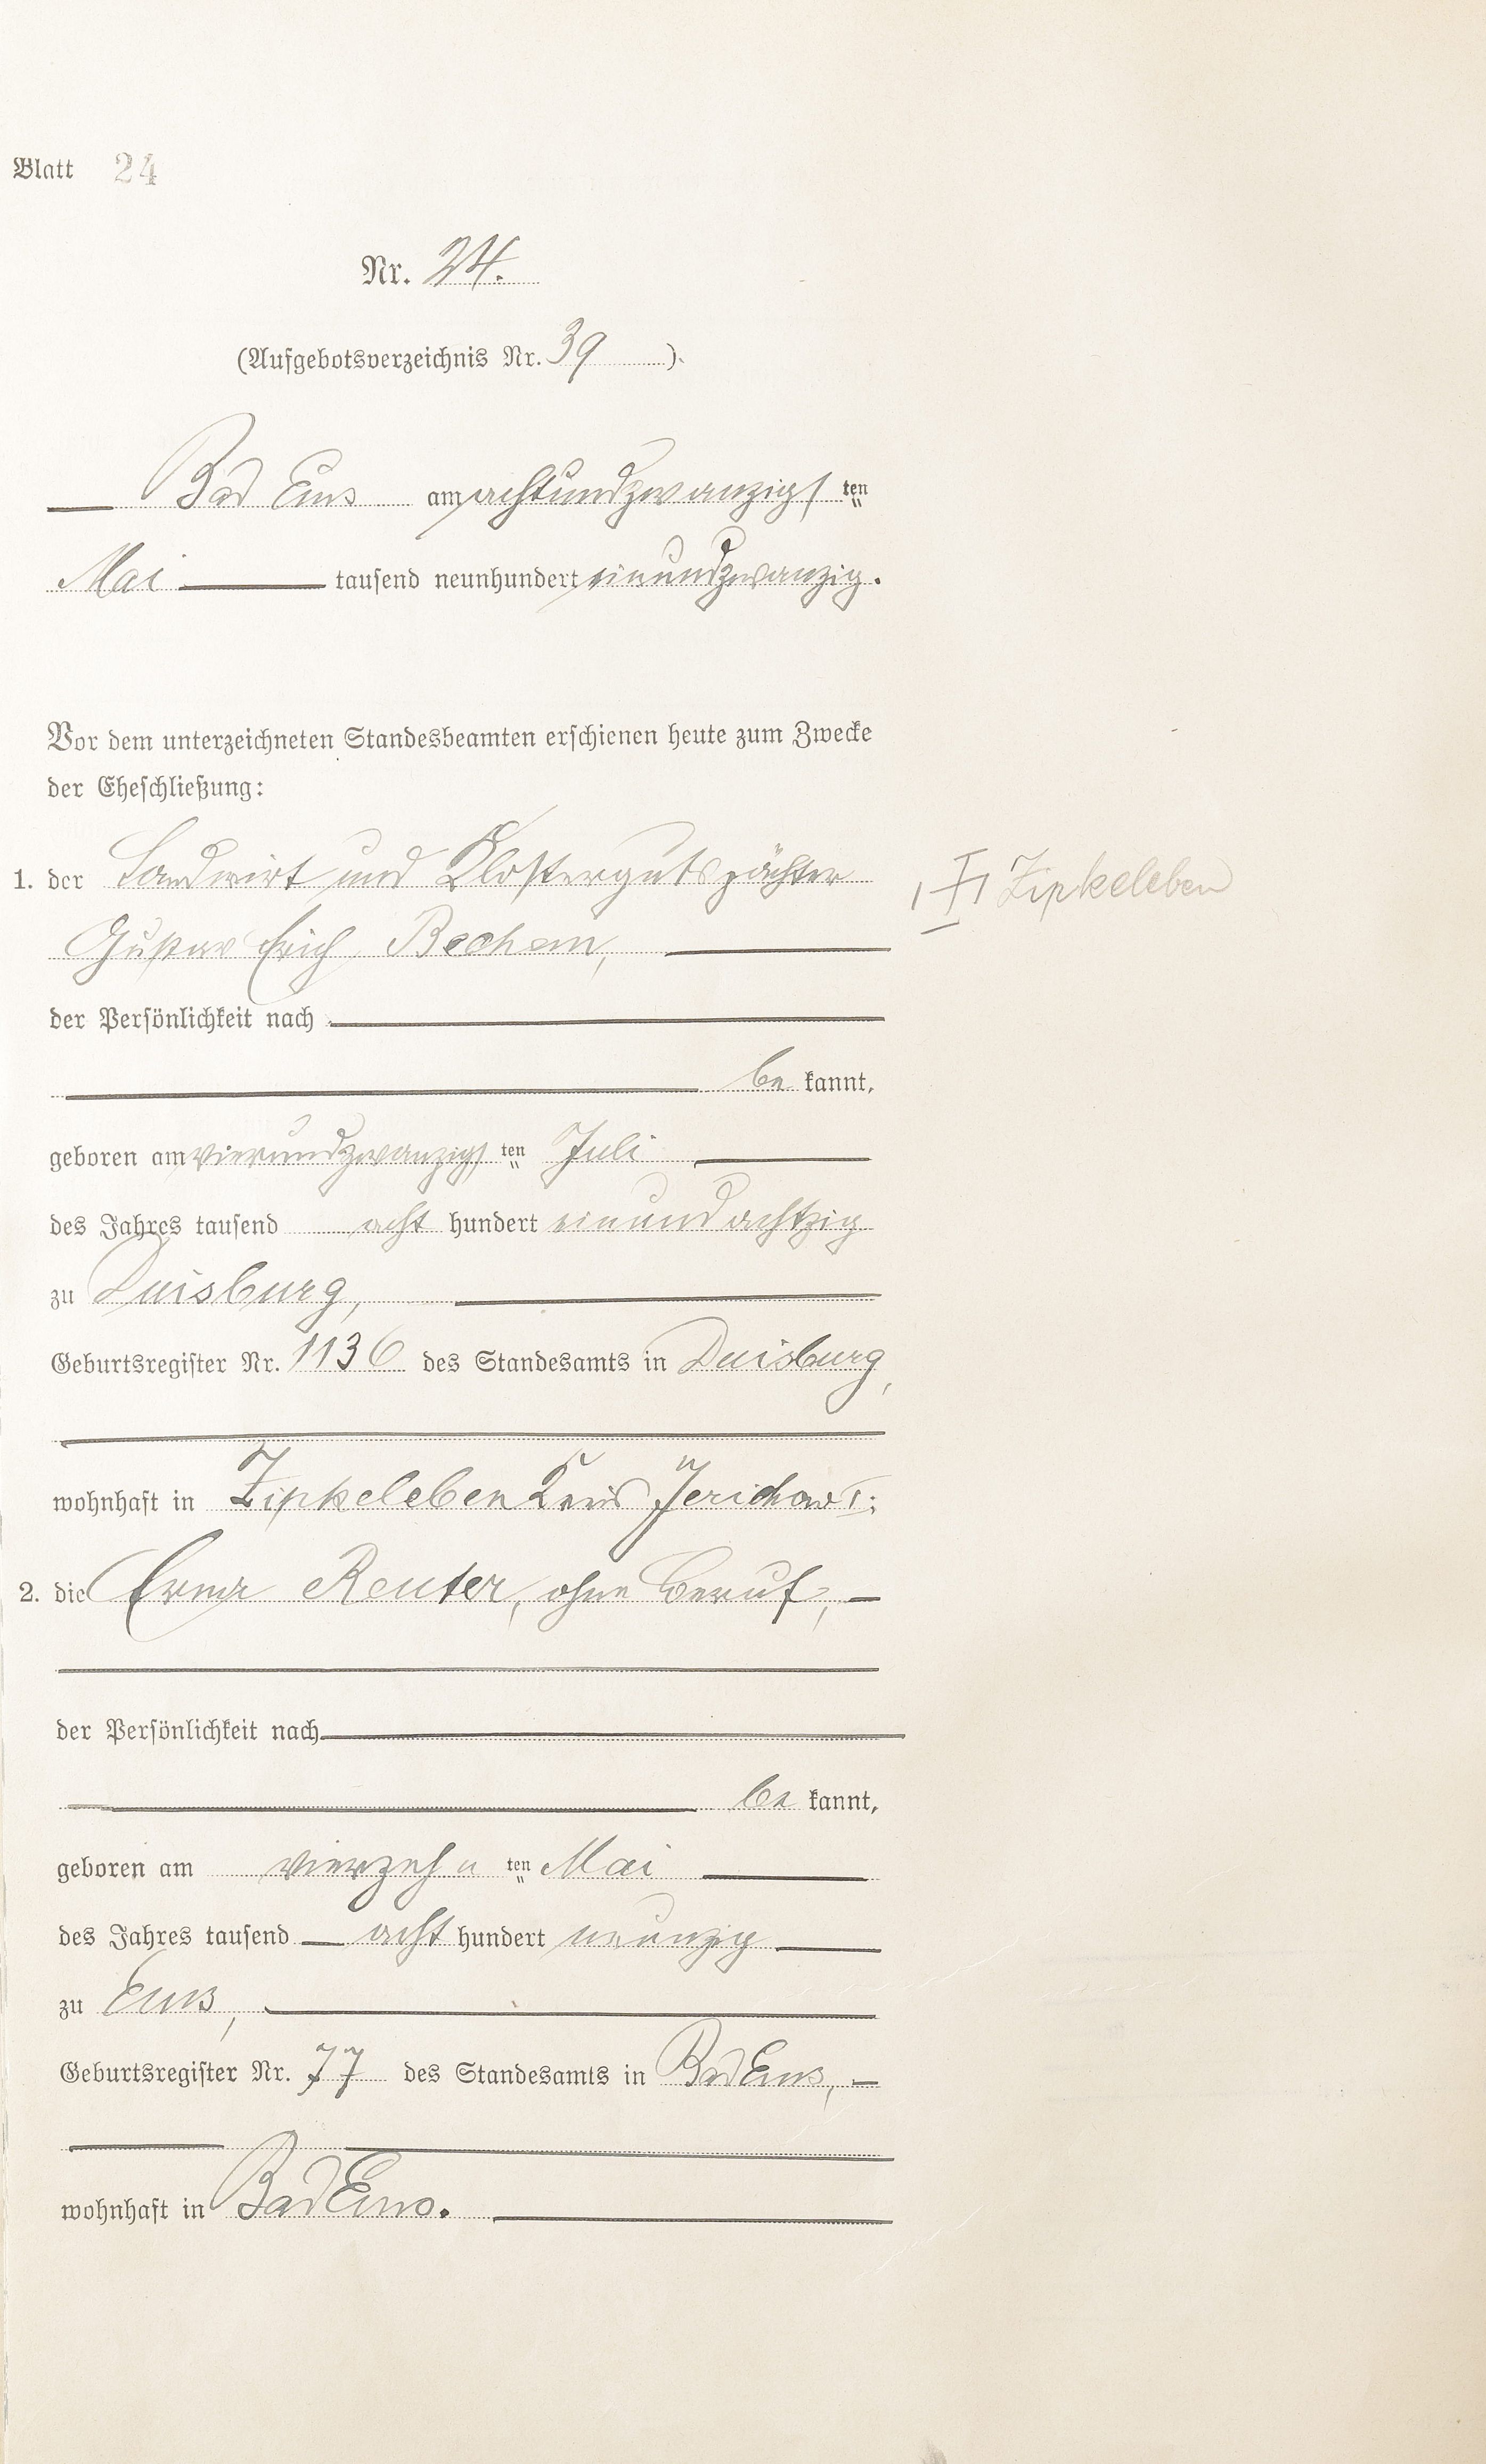 Blatt 24
Nr. 24.
(Aufgebotsverzeichnis Nr. 39).
Bad Ems am achtundzwanzigsten
Mai tausend neunhundert einundzwanzig.
Vor dem unterzeichneten Standesbeamten erschienen heute zum Zwecke
der Eheschließung:
1. der Landwirt und Klostergutspächter
Zipkeleben
Gustav Erich Bechem,
der Persönlichkeit nach
be kannt,
geboren am vierundzwanzigsten Juli
des Jahres tausend acht hundert einundachtzig
zu Duisburg,
Geburtsregister Nr. 1136 des Standesamts in Duisburg,
wohnhaft in Zipkeleben Kreis Jerichow I;
2. die Erna Reuter, ohne Beruf,
der Persönlichkeit nach
be kannt,
geboren am vierzehnten Mai
des Jahres tausend acht hundert neunzig
zu Ems,
Geburtsregister Nr. 77 des Standesamts in Bad Ems,
wohnhaft in Bad Ems.